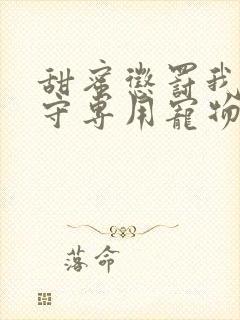 甜蜜惩罚我
守专用宠物
落命